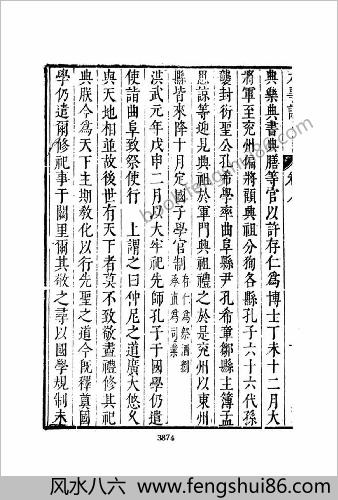 典樂典書典膳等官以許存仁為博士丁未十二月大
將軍至兖州徧將領興祖分狥各縣孔子六十六代孫
襲封衍聖公孔希學率曲阜縣尹孔希章鄒縣主簿孟
思諒等迎見興祖於軍門興祖禮之於是兖州以東州
縣皆來降十月定國子學官制存仁為祭酒劉
承直為司業
洪武元年戊申二月以太牢祀先師孔子于國學仍遣
使詣曲阜致祭使行 上謂之曰仲尼之道廣大悠久
與天地相並故後世有天下者莫不致敬盡禮修其祀
典朕今為天下主期教化以行先聖之道今既釋奠國
學仍遣爾修祀事于闕里爾其敬之尋以國學規制未
3874
baoku.fengshui86.com
风水八六 www.fengshui86.com